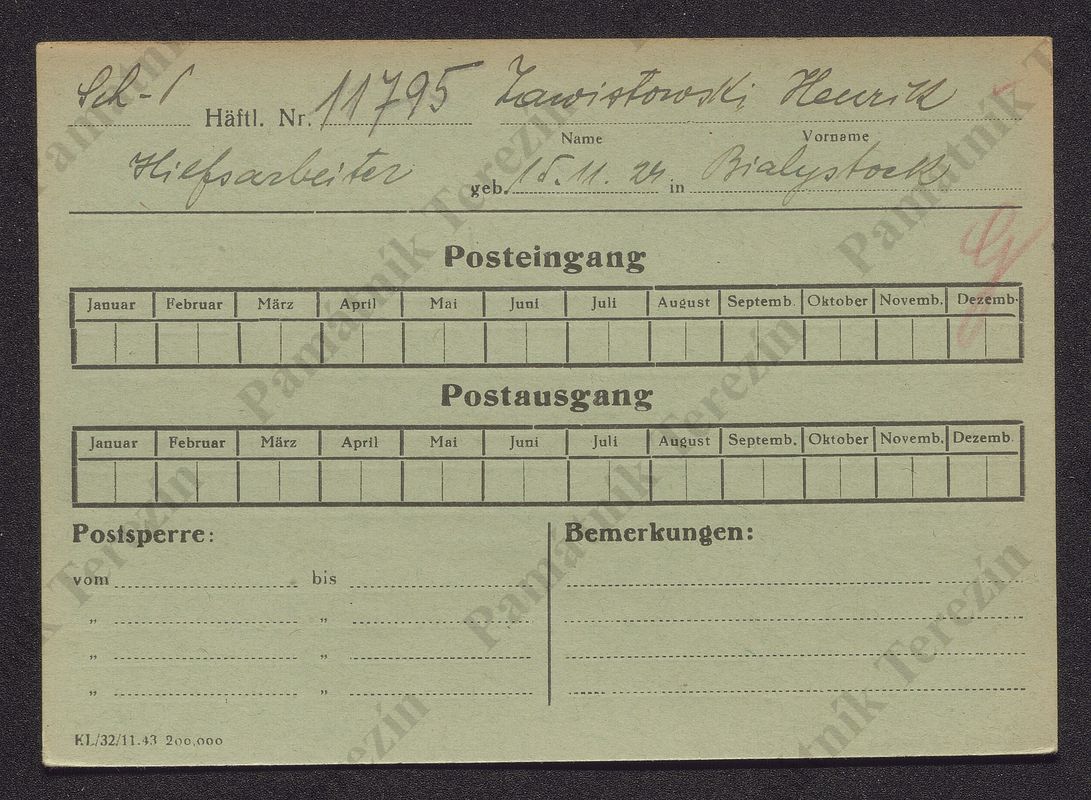 Sch-P
Häftl. Nr. 11795 Zawistowski Henrik
Name Vorname
Hielfsarbeiter geb. 15.11.24 in Bialystock
Posteingang
Januar Februar März April Mai Juni Juli August Septemb. Oktober Novemb. Dezemb.
Postausgang
Januar Februar März April Mai Juni Juli August Septemb. Oktober Novemb. Dezemb.
Postsperre: Bemerkungen:
vom bis
„ „
„ „
„ „
KL/32/11.43 200,000
Památník Terezín